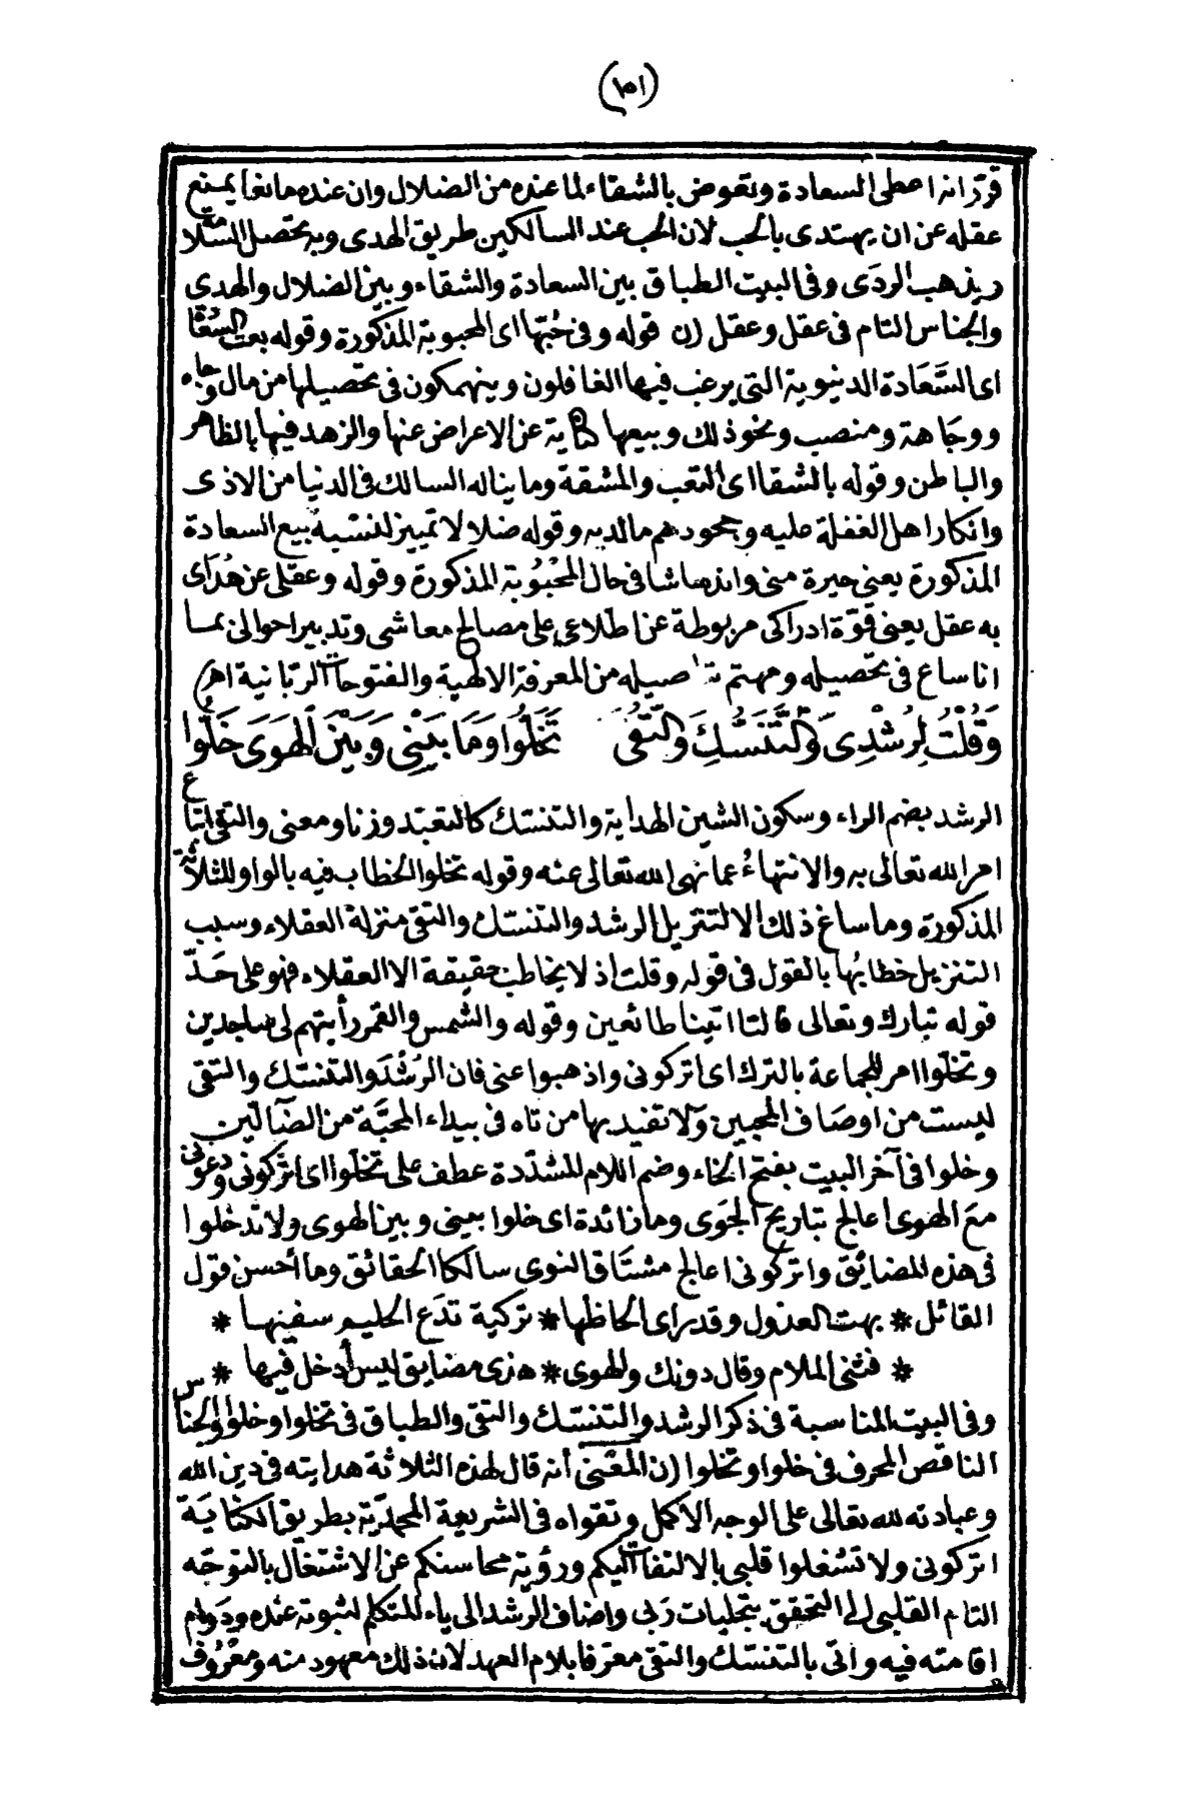 (١٥١)
قرّ انه اعطى السعادة وتعوض بالشقاء لما عنده من الضلال وان عنده مانعا يمنع
عقله عن ان يهتدى بالحب لان الحب عند السالكين طريق الهدى وبه تحصل السلامة
ويذهب الردَى وفى البيت الطباق بين السعادة والشقاء وبين الضلال والهدى
والجناس التام فى عقل وعقل (ن قوله وفى حُبّها اى المحبوبة المذكورة وقوله بعت السُعْدَا
اى السَّعَادة الدنيوية التى يرغب فيها الغافلون وينهمكون فى تحصيلها من مال وجاه
ووجَاهة ومنصب ونحو ذلك وبيعها كناية عن الاعراض عنها والزهد فيها بالظاهر
والباطن وقوله بالشقا اى التعب والمشقة وما يناله السالك فى الدنيا من الاذى
وانكار اهل الغفلة عليه وجحودهم ما لديه وقوله ضلالا تمييز لنسبة بيع السعادة
المذكورة يعنى حيرة منى واندهاشا فى حال المحْبُوبة المذكورة وقوله وعقلى عن هُدَاى
به عقل يعنى قوّة ادراكى مربوطة عن اطلاعى على مصالح معاشى وتدبير احوالى بما
انا ساع فى تحصيله ومهتم بتفاصيله من المعرفة الالهية والفتوحات الربّانية اهـ)
وَقُلْتُ لِرُشْدِى وَالتَّنَسُّكِ وَالتُّقَى تَخَلَّوا وَمَا بَيْنِى وَبَيْنَ الهَوَى خَلُّوا
الرشد بضم الراء وسكون الشين الهداية والتنسّك كالتعبّد وزنا ومعنى والتقى اتباع
امر الله تعالى به والانتهاءُ عما نهى الله تعالى عنه وقوله تخلوا الخطاب فيه بالواو للثلاثة
المذكورة وما ساغ ذلك الا لتنزيل الرشد والتنسّك والتقى منزلة العقلاء وسبب
التنزيل خطابُها بالقول فى قوله وقلت اذ لا يخاطب حقيقة الا العقلاء فهو على حَدّ
قوله تبارك وتعالى قالتا اتينا طائعين وقوله والشمس والقمر رأيتهم لى ساجدين
وتخلّوا امر للجماعة بالترك اى اتركونى واذهبوا عنى فان الرُشْدَ والتنسّك والتقى
ليست من اوصَاف المحبين وَلا تفيد بها من تاه فى بيداء المحبَّة من الضآلّين
وخلوا فى آخر البيت بفتح الخاء وضم اللام المشدّدة عطف على تخلّوا اى اتركونى ودعونى
معَ الهوى اعالج تباريح الجَوى وما زائدة اى خلوا بينى وبين الهوى ولا تدخلوا
فى هذه المضائق واتركونى اعالج مشتَاق النوى سالكا الحقائق وما أحسن قول
القائل * بهت العذول وقد راى الحاظها * تركية تدَع الحليم سفيها *
* فثنى الملام وقال دونك والهوى * هذى مضايق ليس أدخل فيها *
وفى البيت المناسبة فى ذكر الرشد والتنسّك والتقى والطباق فى تخلوا وخلوا والجناس
الناقص المحرف فى خلوا وتخلوا (ن المعْنى أنه قال لهذه الثلاثة هدايته فى دين الله
وعبادته لله تعالى على الوجه الاكمل وتقواه فى الشريعة المحمّدية بطريق الكنايَة
اتركونى ولا تشغلوا قلبى بالالتفات اليكم ورؤية محاسنكم عن الاشتغال بالتوجّه
التام القلبى الى التحقق بتجليات رَبى واضاف الرشد الى ياء المتكلم لثبوته عنده ودَوام
اقامته فيه واتى بالتنسّك والتقى معرّفا بلام العهد لان ذلك معهود منه ومعْرُوف